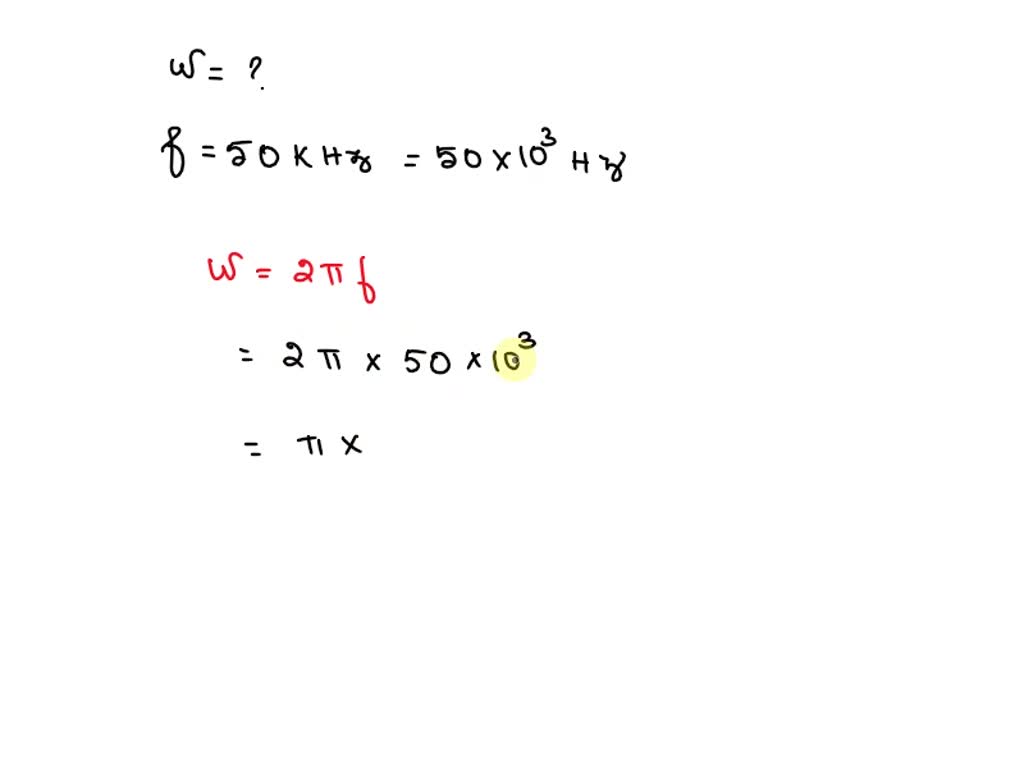 w = ?
f = 50 KHz = 50 × 10³ Hz
w = 2π f
= 2 π × 50 × 10³
= π ×